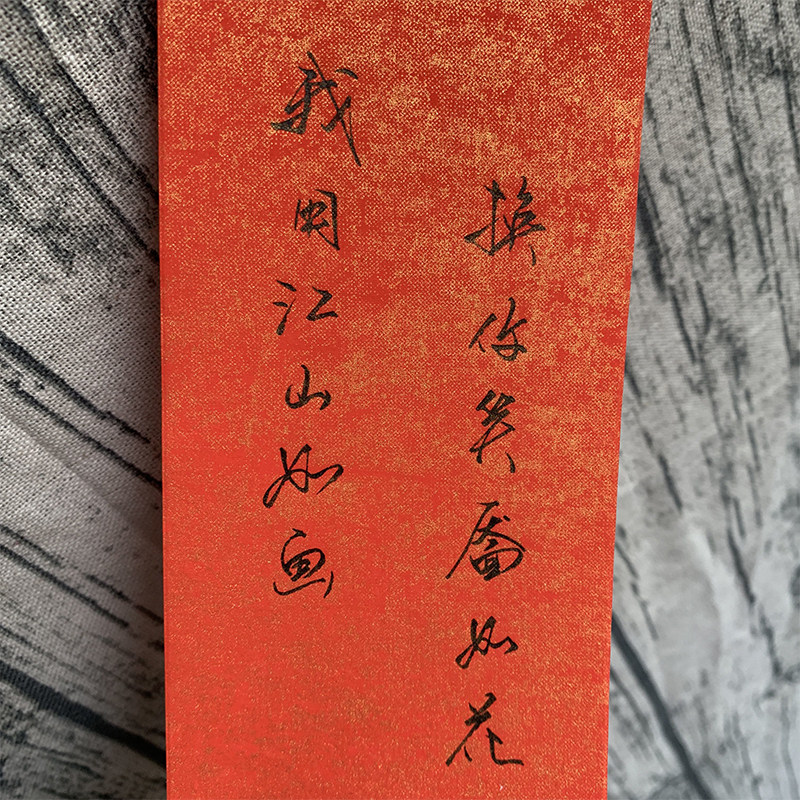 我用江山如画
换你笑靥如花